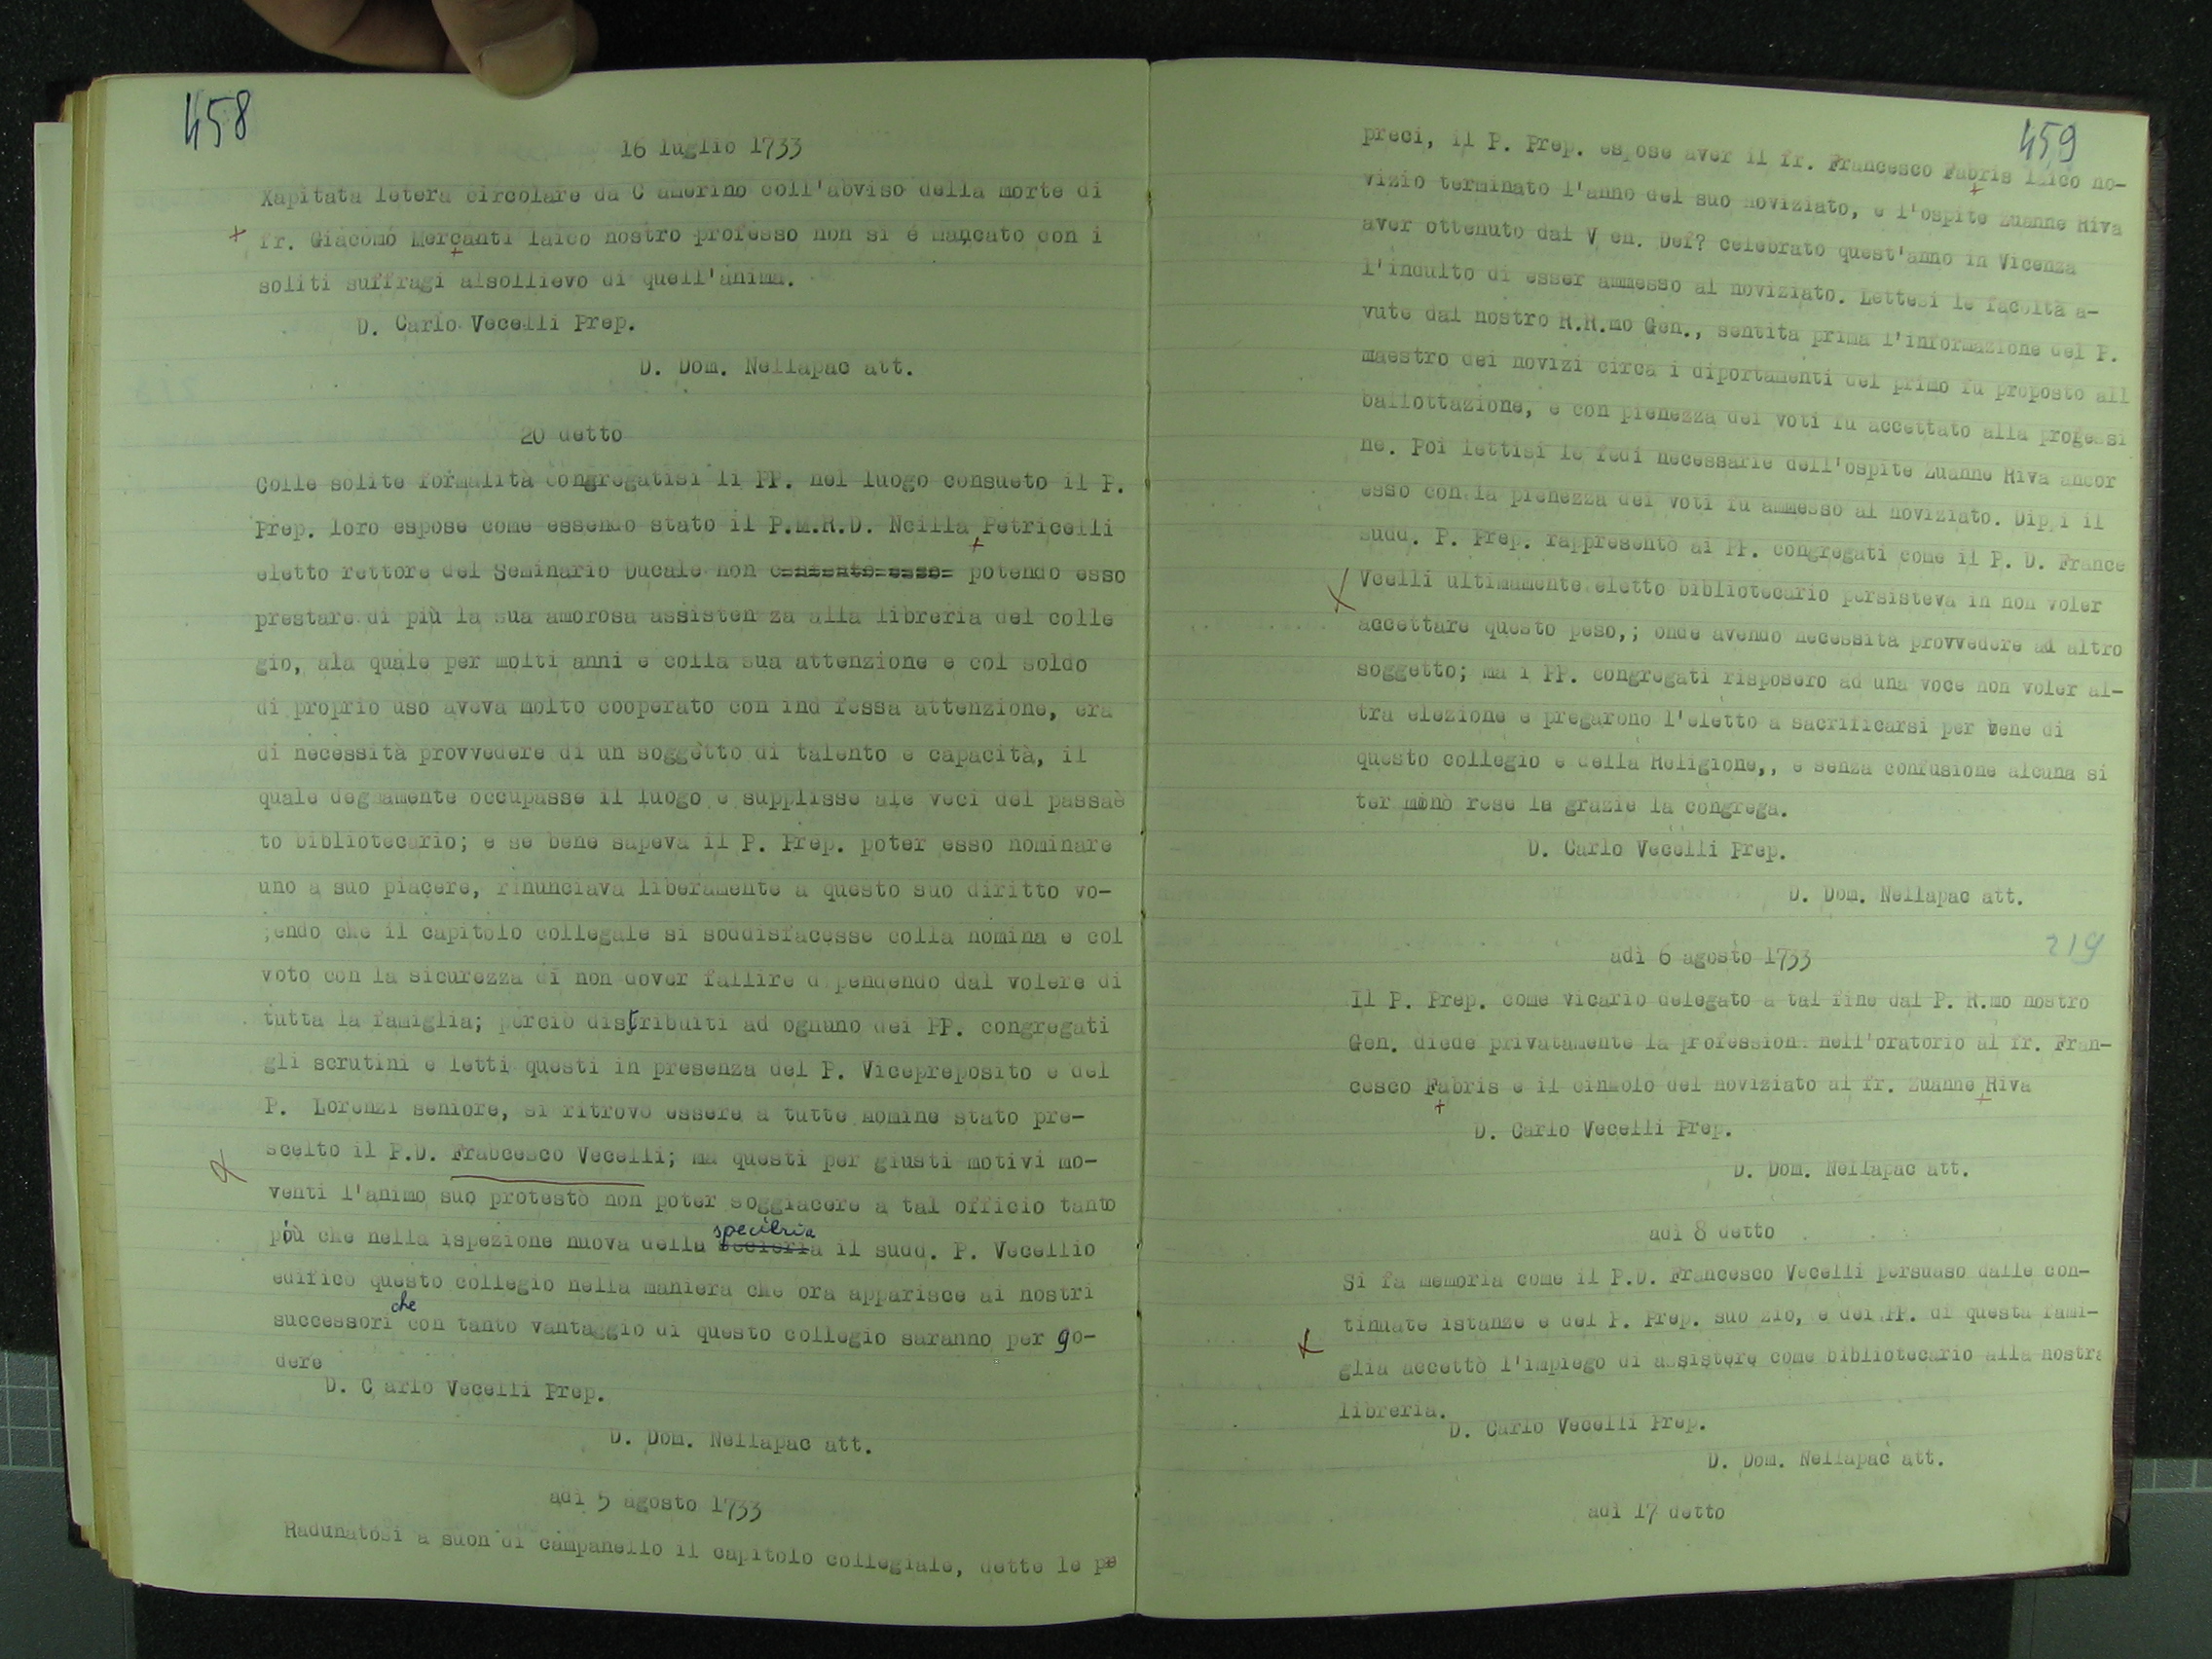 458
16 luglio 1733
Xapitata letera circolare da C amerino coll'abviso della morte di
+ fr. Giacomo Mercanti laico nostro professo non si é mancato con i
soliti suffragi alsollievo di quell'anima.
D. Carlo Vecelli Prep.
D. Dom. Nellapac att.
20 detto
Colle solite formalità congregatisi li PP. nel luogo consueto il P.
Prep. loro espose come essendo stato il P.M.R.D. Ncilla Petricelli
eletto rettore del Seminario Ducale non potendo esso
prestare di più la sua amorosa assisten za alla libreria del colle
gio, ala quale per molti anni e colla sua attenzione e col soldo
di proprio uso aveva molto cooperato con ind fessa attenzione, era
di necessità provvedere di un soggetto di talento e capacità, il
quale degnamente occupasse il luogo e supplisse ale veci del passaè
to bibliotecario; e se bene sapeva il P. Prep. poter esso nominare
uno a suo piacere, rinunciava liberamente a questo suo diritto vo-
;endo che il capitolo collegale si soddisfacesse colla nomina e col
voto con la sicurezza di non dover fallire dipendendo dal volere di
tutta la famiglia; perciò distribuiti ad ognuno dei PP. congregati
gli scrutini e letti questi in presenza del P. Vicepreposito e del
P. Lorenzi seniore, si ritrovo essere a tutte nomine stato pre-
scelto il P.D. Frabcesco Vecelli; ma questi per giusti motivi mo-
venti l'animo suo protestò non poter soggiacere a tal officio tanto
più che nella ispezione nuova della specieria il sudd. P. Vecellio
edificò questo collegio nella maniera che ora apparisce ai nostri
successori che con tanto vantaggio di questo collegio saranno per go-
dere
D. C arlo Vecelli Prep.
D. Dom. Nellapac att.
adì 5 agosto 1733
Radunatosi a suon di campanello il capitolo collegiale, dette le pe
459
preci, il P. Prep. espose aver il fr. Francesco Fabris laico no-
vizio terminato l'anno del suo noviziato, e l'ospite Zuanne Riva
aver ottenuto dal V en. Def? celebrato quest'anno in Vicenza
l'indulto di esser ammesso al noviziato. Lettesi le facoltà a-
vute dal nostro R.R.mo Gen., sentita prima l'informazione del P.
maestro dei novizi circa i diportamenti del primo fu proposto all
ballottazione, e con pienezza dei voti fu accettato alla progessi
ne. Poi lettisi le fedi necessarie dell'ospite Zuanne Riva ancor
esso con la pienezza dei voti fu ammesso al noviziato. Dipoi il
sudd. P. Prep. rappresentò ai PP. congregati come il P. D. France
Vcelli ultimamente eletto bibliotecario persisteva in non voler
accettare questo peso,; onde avendo necessità provvedere ad altro
soggetto; ma i PP. congregati risposero ad una voce non voler al-
tra elezione e pregarono l'eletto a sacrificarsi per bene di
questo collegio e della Religione,, e senza confusione alcuna si
ter minò rese la grazie la congrega.
D. Carlo Vecelli Prep.
D. Dom. Nellapac att.
219
adì 6 agosto 1733
Il P. Prep. come vicario delegato a tal fine dal P. R.mo nostro
Gen. diede privatamente la profession nell'oratorio al fr. Fran-
cesco Fabris e il cingolo del noviziato al fr. Zuanne Riva
D. Carlo Vecelli Prep.
D. Dom. Nellapac att.
adì 8 detto
Si fa memoria come il P.D. Francesco Vecelli persuaso dalle con-
tinuate istanze e del P. Prep. suo zio, e dei PP. di questa fami-
glia accettò l'impiego di assistere come bibliotecario alla nostra
libreria.
D. Carlo Vecelli Prep.
D. Dom. Nellapac att.
adì 17 detto